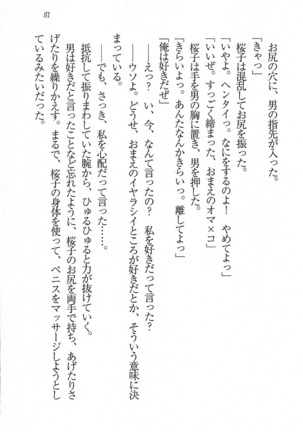 81
お尻の穴に、男の指先が入った。
「きゃっ」
桜子は混乱してお尻を振った。
「いやよ。ヘンタイっ。なにをするのよ！　やめてよっ」
「いいぜ。すっごく締まった、おまえのオマ×コ」
桜子は手を男の胸に置き、男を押した。
「きらいよっ。あんたなんかきらいっ。離してよっ」
「俺は好きだぜ」
――えっ？　い、今、なんて言ったの？　私を好きだって言った？
――ウソよ。どうせ、おまえのイヤラシイところが好きだとか、そういう意味に決
まっている。
――でも、さっき、私を心配だって言った……。
抵抗して振りまわしていた腕から、ひゅるひゅると力が抜けていく。
男は好きだと言ったことなど忘れたように、桜子のお尻を両手で持ち、あげたりさ
げたりを繰りかえす。まるで、桜子の身体を使って、ペニスをマッサージしようとし
ているみたいだった。